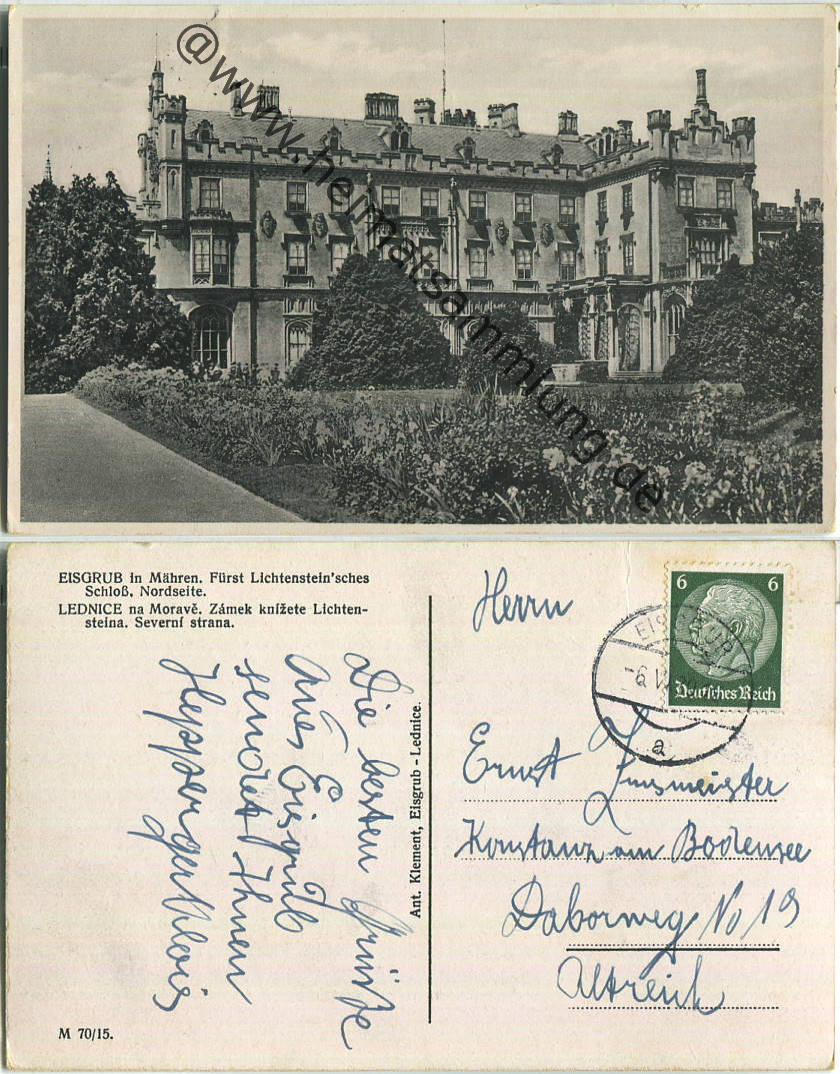 @www.heimatsammlung.de
EISGRUB in Mähren. Fürst Lichtenstein'sches
Schloß, Nordseite.
LEDNICE na Moravě. Zámek knížete Lichten-
steina. Severní strana.
Die besten Grüße
aus Eisgrub
sendet Ihnen
M 70/15.
Ant. Klement, Eisgrub - Lednice.
6 6
Deutsches Reich
EISGRUB
a
Herrn
Ernst
Konstanz am Bodensee
Daborweg No 19
Altreich